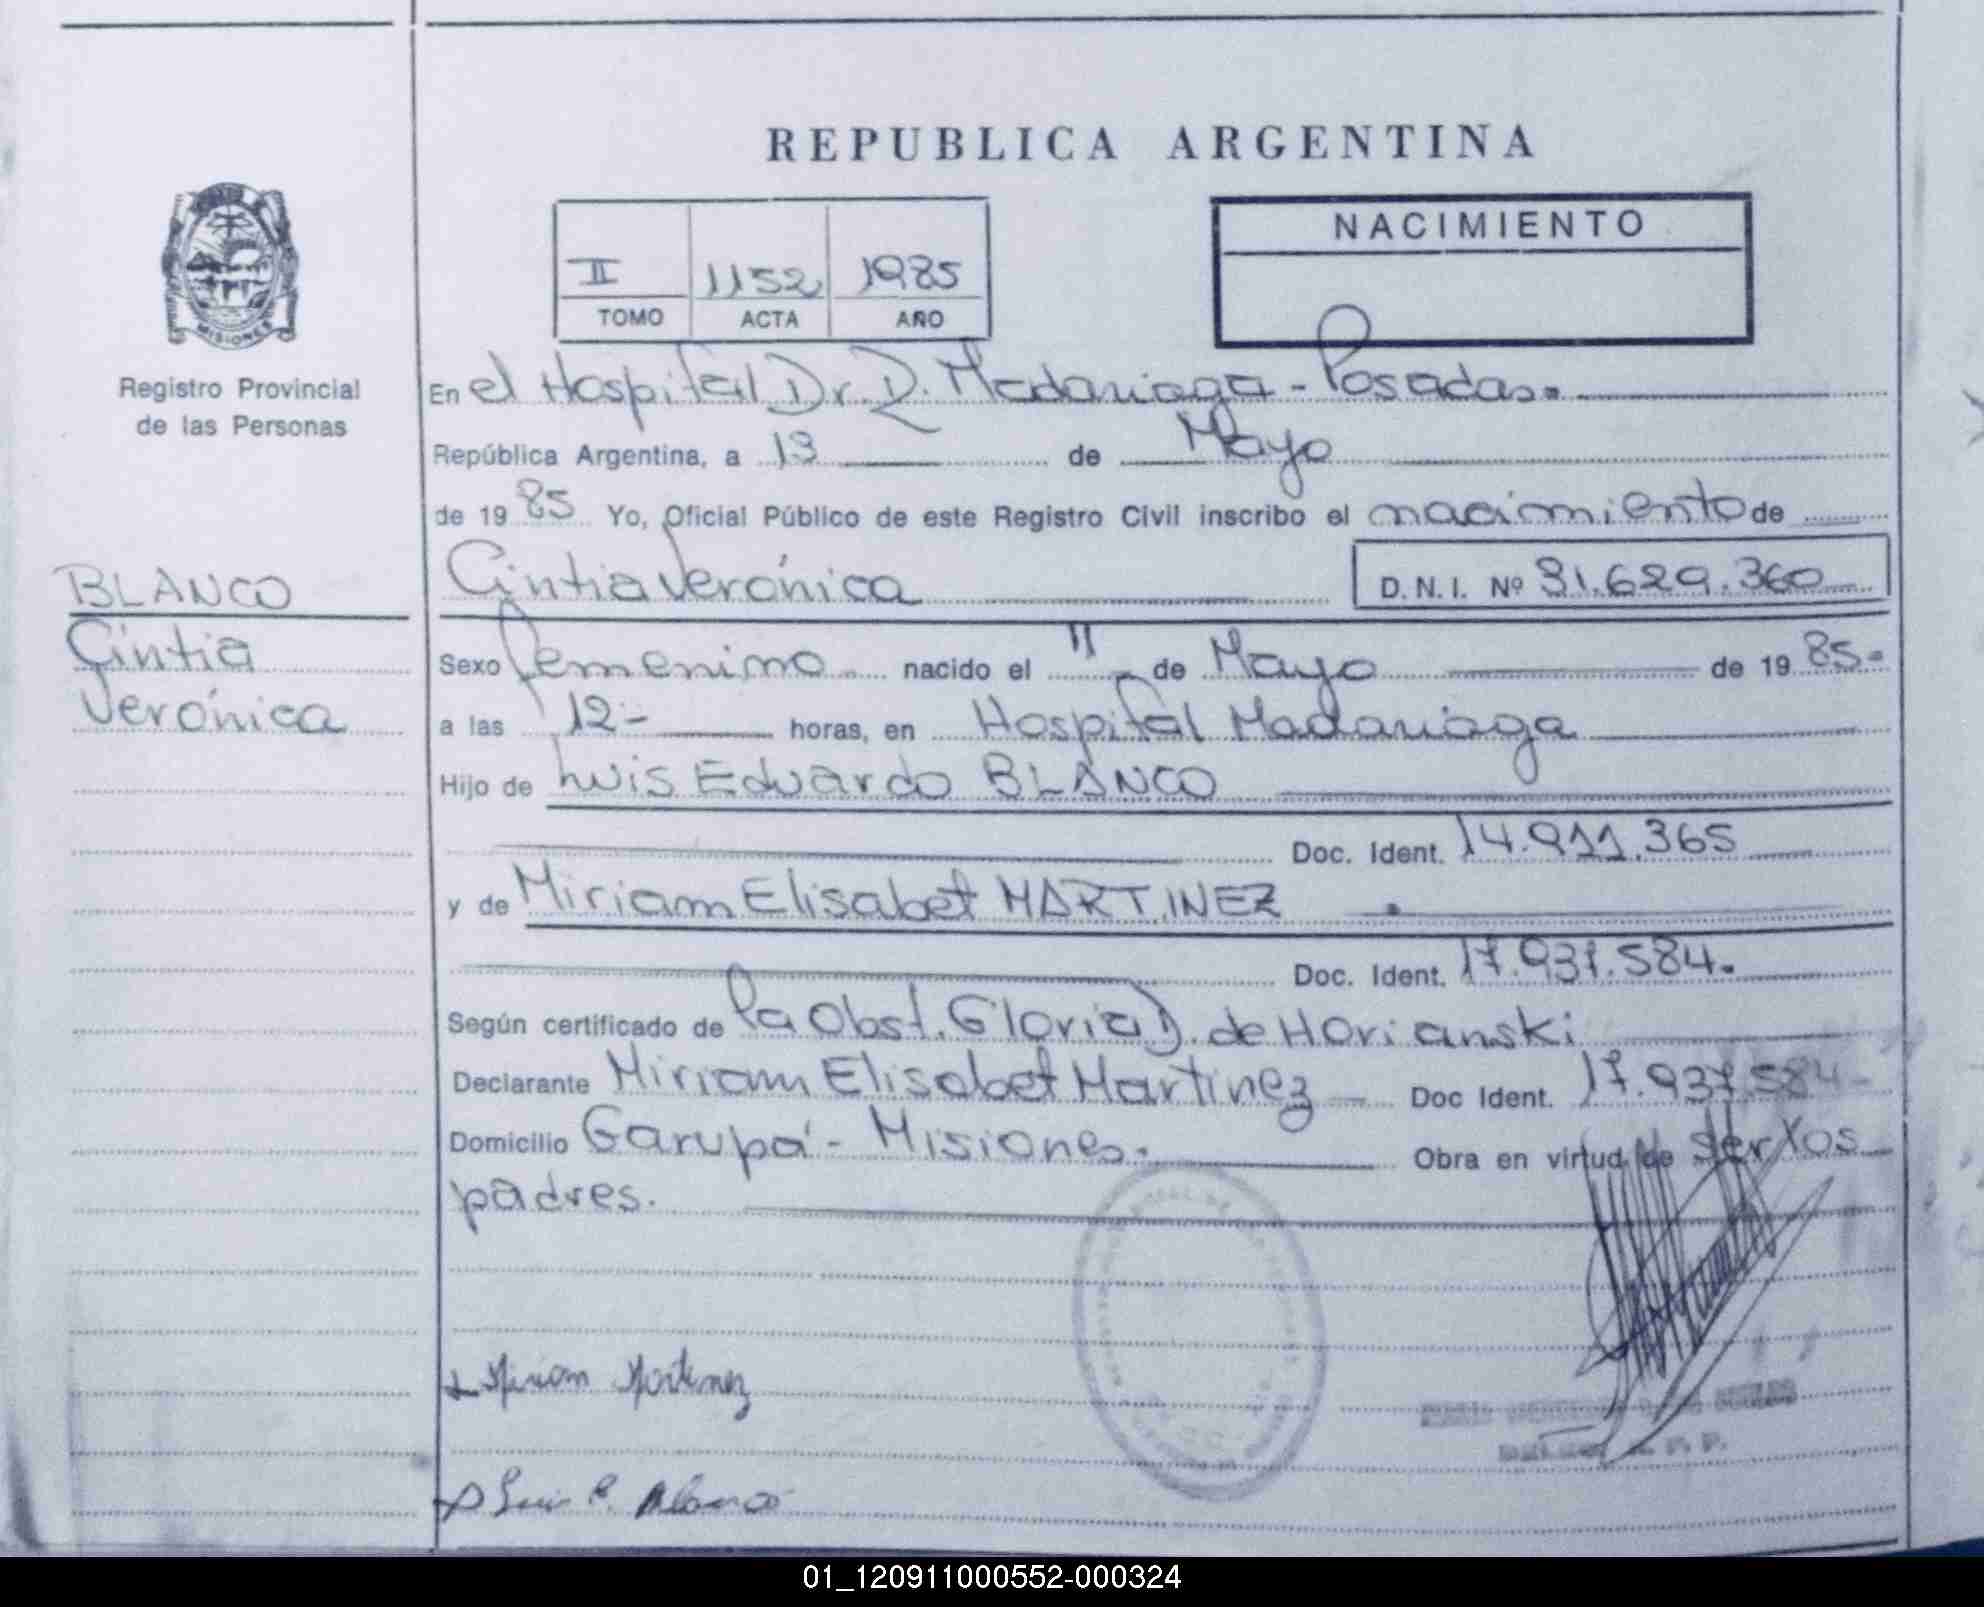 REPUBLICA ARGENTINA
NACIMIENTO
II 1152 1985
TOMO ACTA AÑO
MISIONES
Registro Provincial
de las Personas
En el Hospital Dr. R. Madariaga - Posadas.
República Argentina, a 13 de Mayo
de 1985 Yo, Oficial Público de este Registro Civil inscribo el nacimiento de
BLANCO
Cintia
Verónica
Cintia Verónica D.N.I. Nº 31.629.360
Sexo femenino nacido el 11 de Mayo de 1985.
a las 12- horas, en Hospital Madariaga
Hijo de Luis Eduardo BLANCO
Doc. Ident. 14.911.365
y de Miriam Elisabet MARTINEZ
Doc. Ident. 17.937.584.
Según certificado de la Obst. Gloria D. de Horianski
Declarante Miriam Elisabet Martinez Doc Ident. 17.937.584-
Domicilio Garupá - Misiones. Obra en virtud de ser los
padres.
Miriam Martinez
Luis E. Blanco
01_120911000552-000324